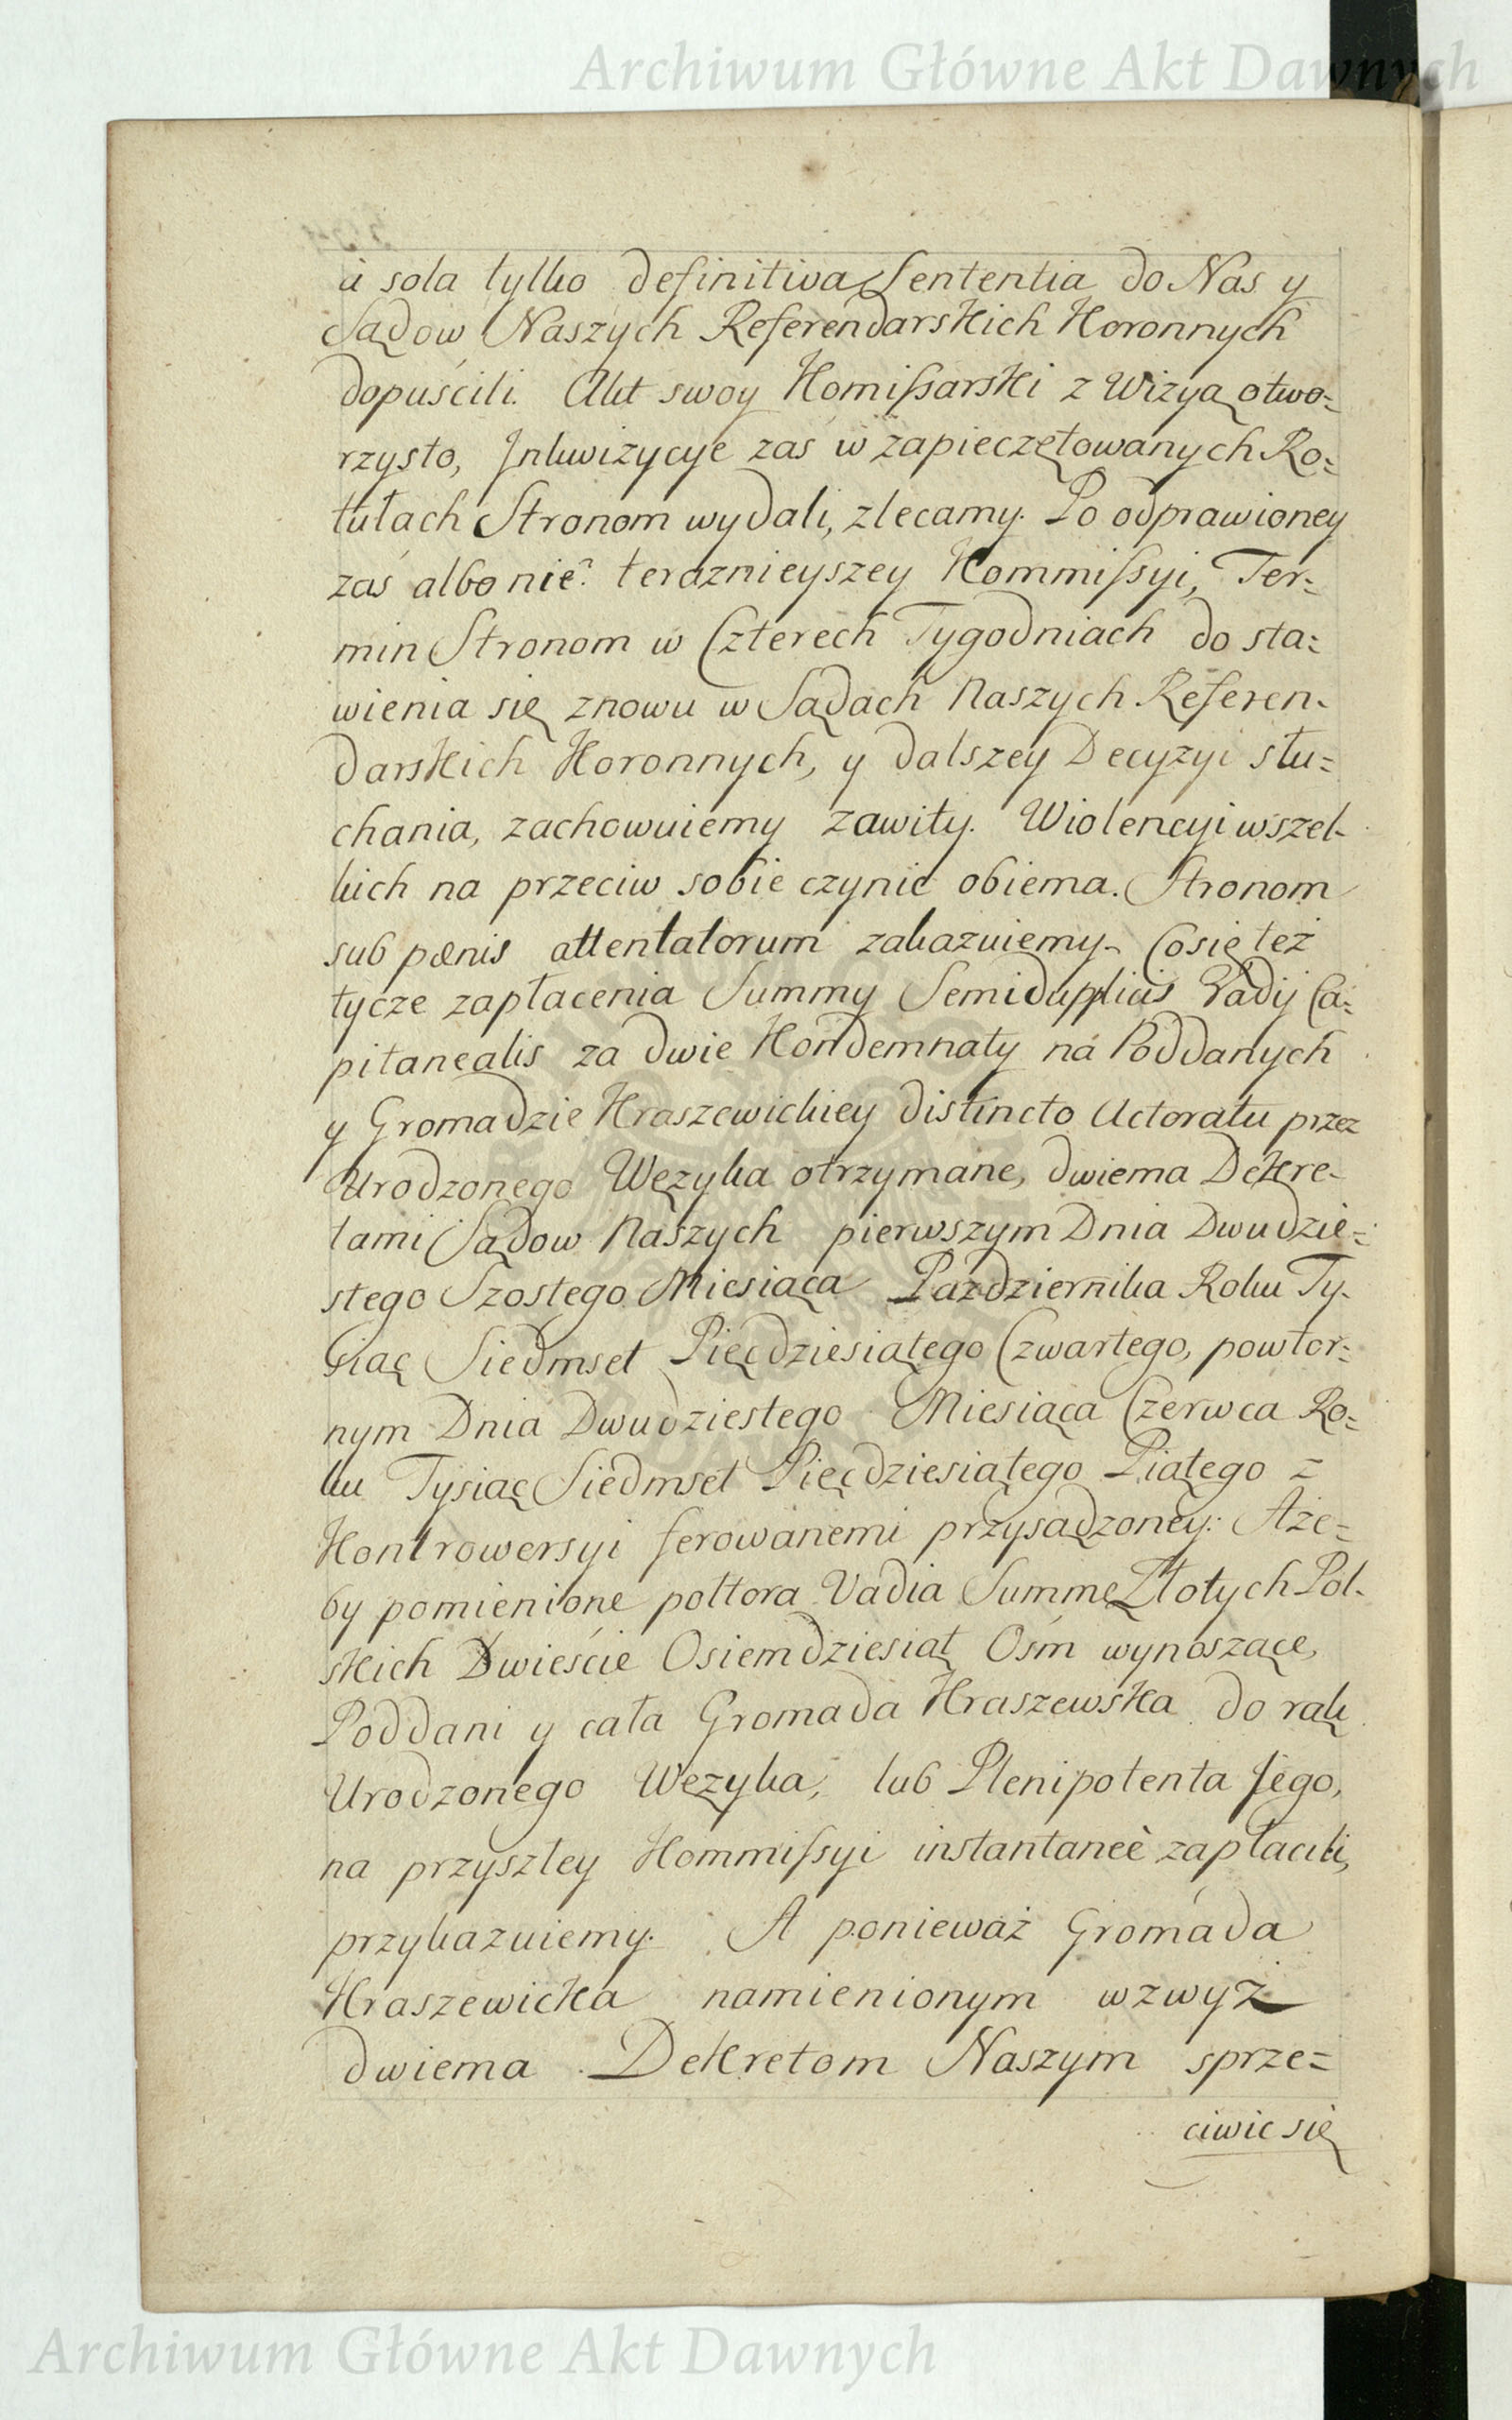 Archiwum Główne Akt Dawnych
à sola tylko definitiva Sententia do Nas y
Sądow Naszych Referendarskich Koronnych
dopuścili. Akt swoy Komissarski z Wizyą otwo=
rzysto, Inkwizycye zaś w zapieczętowanych Ro=
tułach Stronom wydali, zlecamy. Po odprawioney
zaś albo nie? teraznieyszey Kommissyi, Ter=
min Stronom w Czterech Tygodniach do sta=
wienia się znowu w Sądach Naszych Referen-
darskich Koronnych, y dalszey Decyzyi słu=
chania, zachowuiemy zawity. Wiolencyi wszel-
kich na przeciw sobie czynić obiema Stronom
sub pænis attentatorum zakazuiemy. Co się też
tycze zapłacenia Summy Semiduplicis Vadij Ca=
pitanealis za dwie Kondemnaty na Poddanych
y Gromadzie Kraszewickiey distincto Actoratu przez
Urodzonego Węzyka otrzymane, dwiema Dekre-
tami Sądow Naszych pierwszym Dnia Dwudzie=
stego Szostego Miesiąca Pazdziernika Roku Ty-
siąc Siedmset Pięcdziesiątego Czwartego, powtor=
nym Dnia Dwudziestego Miesiąca Czerwca Ro=
ku Tysiąc Siedmset Pięcdziesiątego Piątego z
Kontrowersyi ferowanemi przysądzoney: Aże=
by pomienione połtora Vadia Summę Złotych Pol-
skich Dwieście Osiemdziesiąt Ośm wynoszące,
Poddani y cała Gromada Kraszewska do rąk
Urodzonego Węzyka, lub Plenipotenta Jego,
na przyszłey Kommissyi instantaneè zapłacili,
przykazuiemy. A ponieważ Gromada
Kraszewicka namienionym wzwyż
dwiema Dekretom Naszym sprze=
ciwić się
Archiwum Główne Akt Dawnych